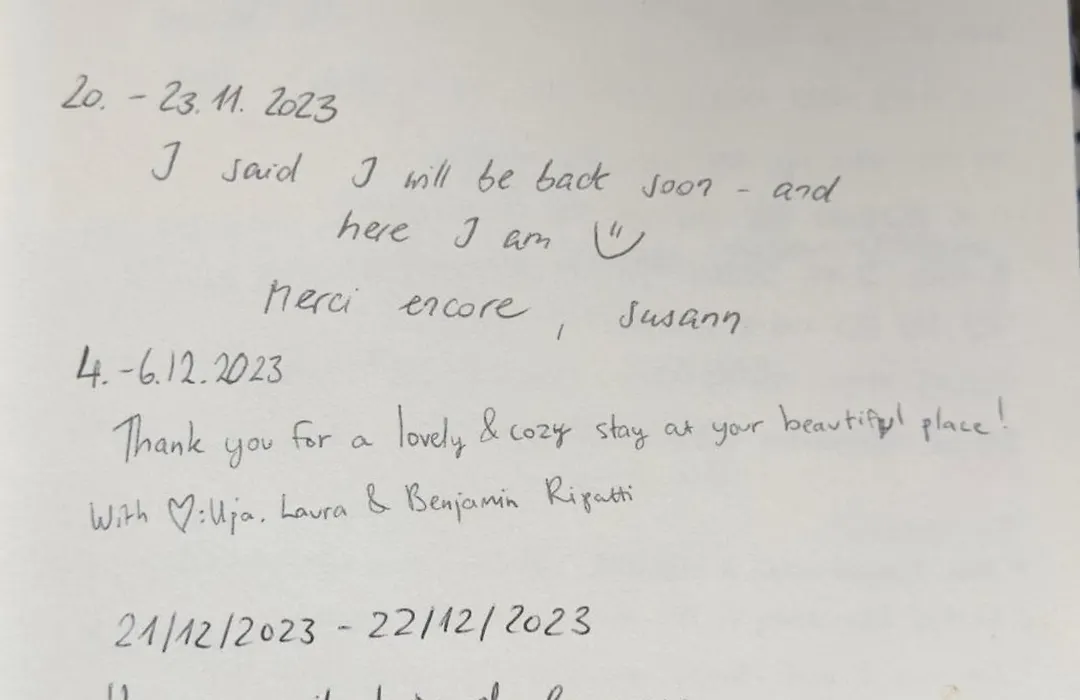 20. - 23.11. 2023
I said I will be back soon - and
here I am
Merci encore, Susann
4.-6.12.2023
Thank you for a lovely & cozy stay at your beautiful place!
With ♡: Laura & Benjamin
21/12/2023 - 22/12/2023